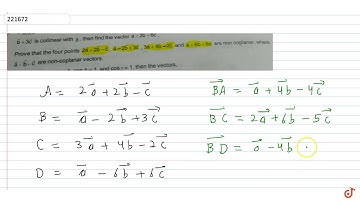 221672
b - 3c is collinear with a, then find the vector a - 2b - 6c
Prove that the four points 2a+2b-c, a-2b+3c, 3a+4b-2c and a-6b+6c are non coplanar, where
a, b, c are non-coplanar vectors.
A = 2a⃗ + 2b⃗ - c⃗
B⃗A = a⃗ + 4b⃗ - 4c⃗
B = a⃗ - 2b⃗ + 3c⃗
B⃗C = 2a⃗ + 6b⃗ - 5c⃗
C = 3a⃗ + 4b⃗ - 2c⃗
B⃗D = a⃗ - 4b⃗
D = a⃗ - 6b⃗ + 6c⃗